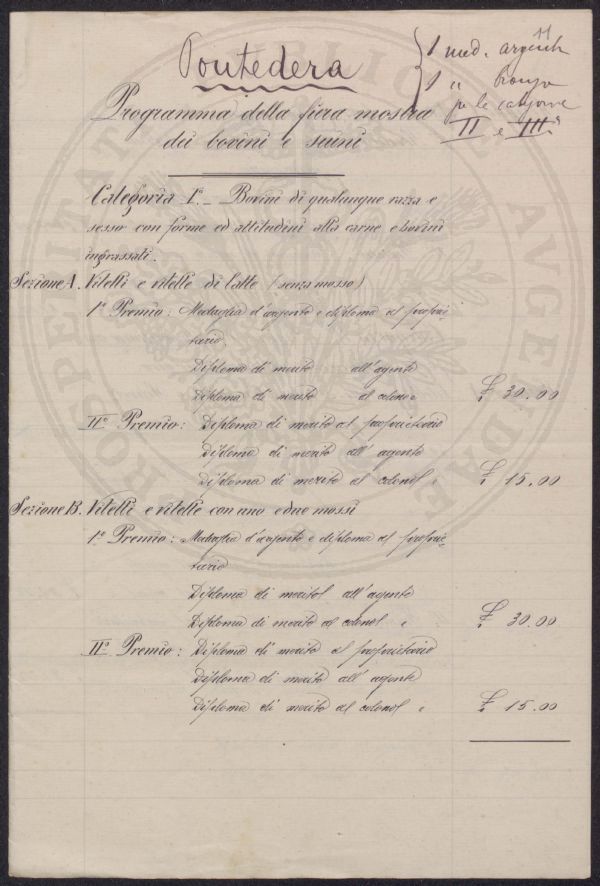 11
Pontedera
1 med. argento
1 " bronzo
per le categorie
II e IIIª
Programma della fiera mostra
dei bovini e suini
Categoria Iª_ Bovini di qualunque razza e
sesso con forme ed attitudini alla carne e bovini
ingrassati.
Sezione A. Vitelli e vitelle di latte (senza mosso)
1º Premio: Medaglia d'argento e diploma al proprie-
tario
Diploma di merito all'agente
Diploma di merito al colono e £ 30.00
IIº Premio: Diploma di merito al proprietario
Diploma di merito all'agente
Diploma di merito al colono e £ 15.00
Sezione B. Vitelli e vitelle con uno e due mossi
1º Premio: Medaglia d'argento e diploma al proprie-
tario
Diploma di merito all'agente
Diploma di merito al colono e £ 30.00
IIº Premio: Diploma di merito al proprietario
Diploma di merito all'agente
Diploma di merito al colono e £ 15.00